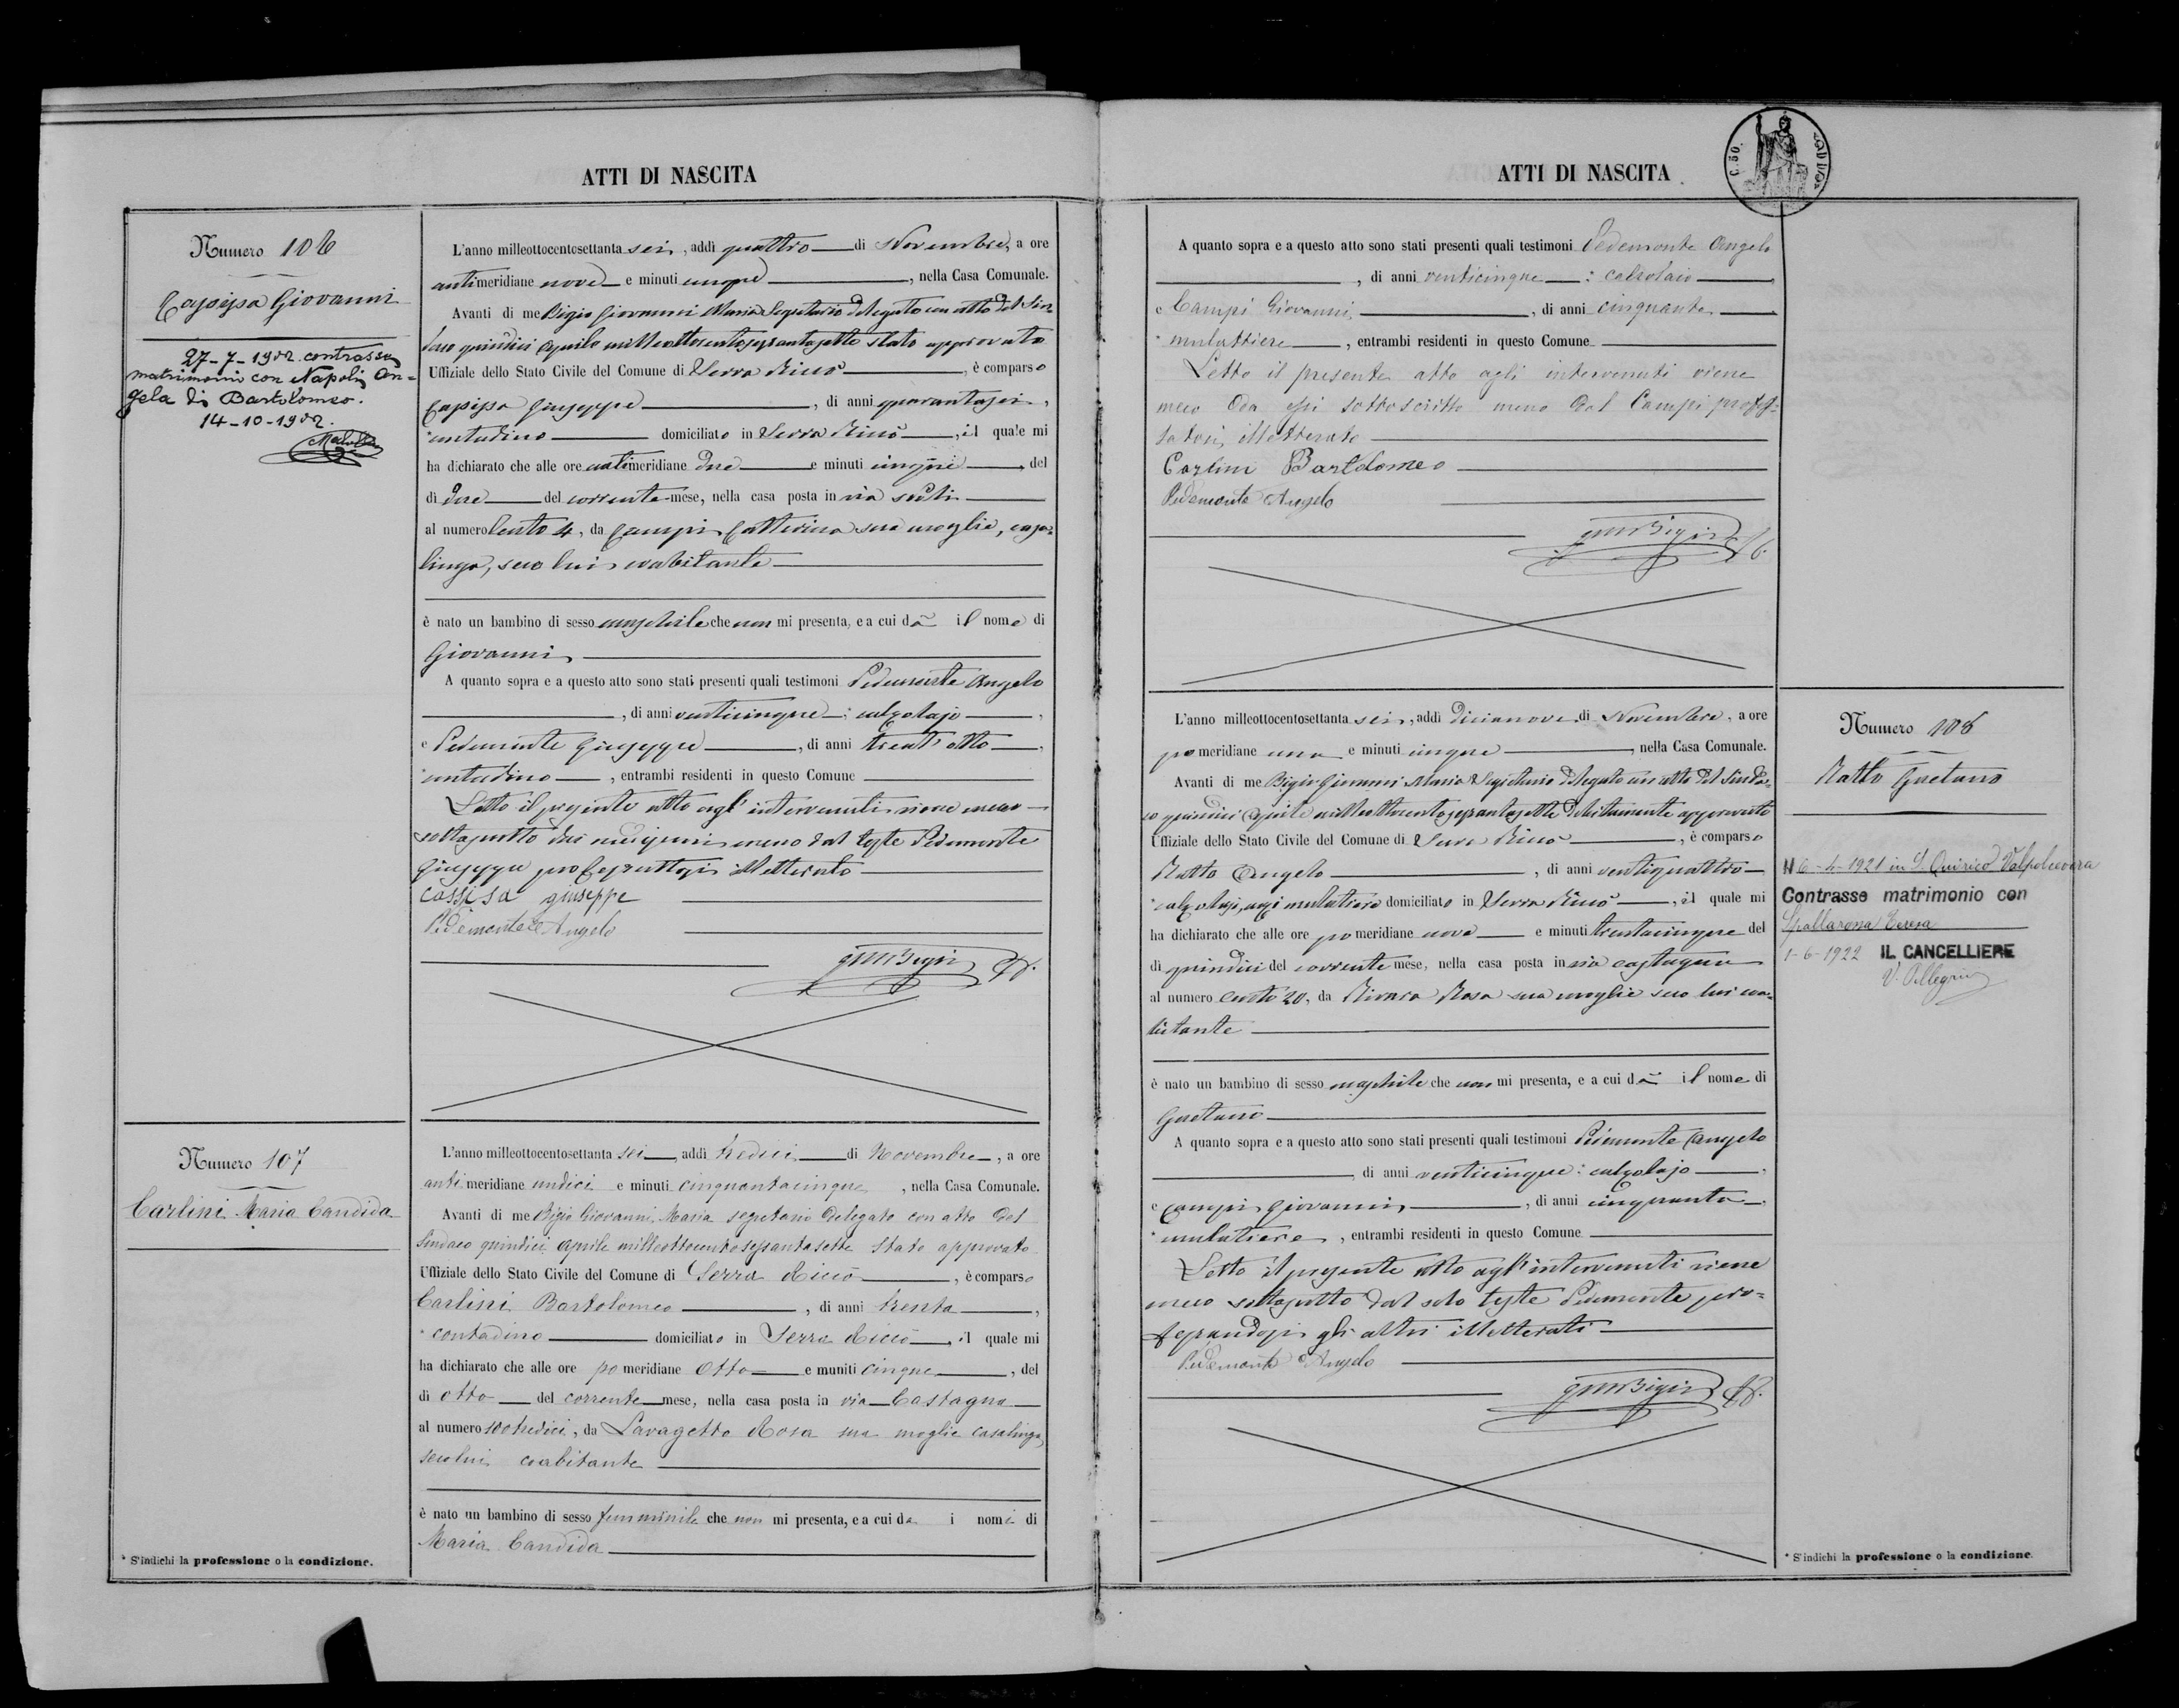 ATTI DI NASCITA
Numero 106
Cassissa Giovanni
27-7-1902 contrasse
matrimonio con Napoli An-
gela di Bartolomeo.
14-10-1902.
L'anno milleottocentosettanta sei, addì quattro di Novembre, a ore
antimeridiane nove e minuti cinque, nella Casa Comunale.
Avanti di me Bigio Giovanni Maria Segretario delegato con atto del Sin-
daco quindici Aprile milleottocentosessantasette stato approvato
Uffiziale dello Stato Civile del Comune di Serra Riccò, è comparso
Cassissa Giuseppe, di anni quarantasei,
*contadino domiciliato in Serra Riccò, il quale mi
ha dichiarato che alle ore antimeridiane due e minuti cinque, del
dì due del corrente mese, nella casa posta in via
al numero cento 4, da Campi Catterina sua moglie, casa-
linga, seco lui coabitante
è nato un bambino di sesso maschile che non mi presenta, e a cui dà il nome di
Giovanni
A quanto sopra e a questo atto sono stati presenti quali testimoni Pedemonte Angelo
, di anni venticinque: calzolajo,
e Pedemonte Giuseppe, di anni trent'otto,
*contadino, entrambi residenti in questo Comune
Letto il presente atto agl'intervenuti viene meco
sottoscritto dai medesimi meno dal teste Pedemonte
Giuseppe professattosi illetterato
cassisa giuseppe
Pedemonte Angelo
GMBigio Us.
Numero 107
Carlini Maria Candida
L'anno milleottocentosettanta sei, addì tredici di Novembre, a ore
antimeridiane undici e minuti cinquantacinque, nella Casa Comunale.
Avanti di me Bigio Giovanni Maria segretario Delegato con atto del
Sindaco quindici aprile milleottocentosessantasette stato approvato
Uffiziale dello Stato Civile del Comune di Serra Riccò, è comparso
Carlini Bartolomeo, di anni trenta,
*contadino domiciliato in Serra Riccò, il quale mi
ha dichiarato che alle ore pomeridiane otto e muniti cinque, del
dì otto del corrente mese, nella casa posta in via Castagna
al numero 100tredici, da Lavagetto Rosa sua moglie casalinga,
seco lui coabitante
è nato un bambino di sesso femminile che non mi presenta, e a cui da i nomi di
Maria Candida
* S'indichi la professione o la condizione.
ATTI DI NASCITA
C. 50.
A quanto sopra e a questo atto sono stati presenti quali testimoni Pedemonte Angelo
, di anni venticinque: calzolaio,
e Campi Giovanni, di anni cinquanta,
*mulattiere, entrambi residenti in questo Comune
Letto il presente atto agli intervenuti viene
meco da essi sottoscritto meno dal Campi profes-
satosi illetterato
Carlini Bartolomeo
Pedemonte Angelo
GMBigio Us.
L'anno milleottocentosettanta sei, addì dicianove di Novembre, a ore
pomeridiane una e minuti cinque, nella Casa Comunale.
Avanti di me Bigio Giovanni Maria Segretario delegato con atto del Sinda-
co quindici Aprile milleottocentosessantasette debitamente approvato
Uffiziale dello Stato Civile del Comune di Serra Riccò, è comparso
Ratto Angelo, di anni ventiquattro
*calzolajo, anzi mulatiere domiciliato in Serra Riccò, il quale mi
ha dichiarato che alle ore pomeridiane nove e minuti trentacinque del
dì quindici del corrente mese, nella casa posta in via castagna
al numero cento 20, da Rivara Rosa sua moglie seco lui coa-
bitante
è nato un bambino di sesso maschile che non mi presenta, e a cui dà il nome di
Gaetano
A quanto sopra e a questo atto sono stati presenti quali testimoni Pedemonte Angelo
, di anni venticinque: calzolajo,
e Campi Giovanni, di anni cinquanta,
*mulatiere, entrambi residenti in questo Comune
Letto il presente atto agl'intervenuti viene
meco sottoscritto dal solo teste Pedemonte pro-
fessandosi gli altri illetterati
Pedemonte Angelo
GMBigio Us.
Numero 108
Ratto Gaetano
Il 6-4-1921 in S. Quirico Valpolcevera
Contrasse matrimonio con
Spallarossa Teresa
1-6-1922 IL CANCELLIERE
V. Pellegrin
* S'indichi la professione o la condizione.